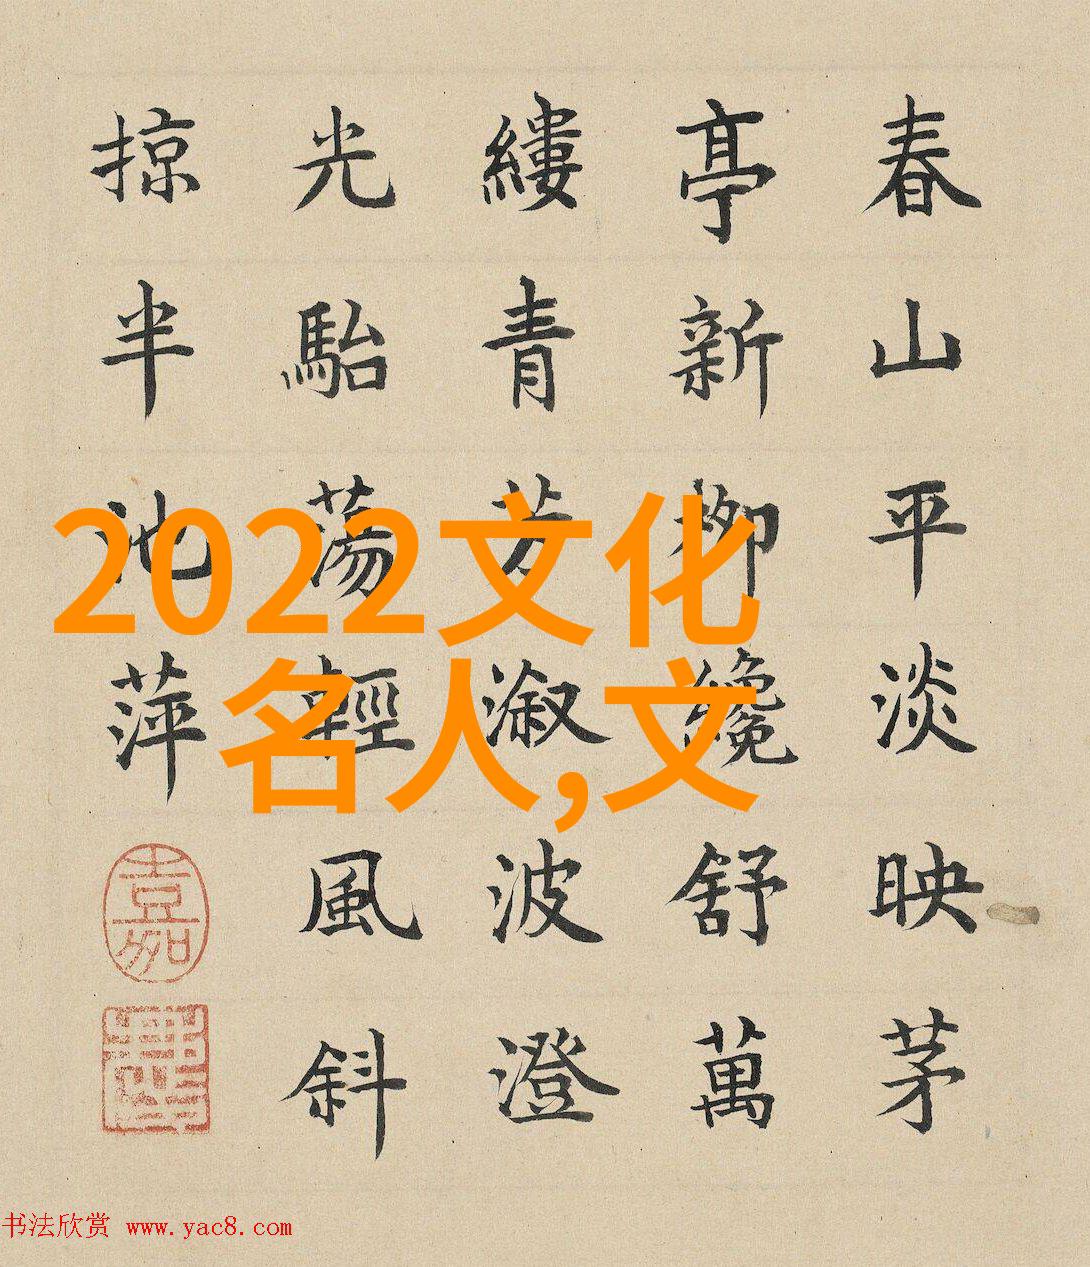 春山平淡映茅
亭新柳纔舒萬
縷青芳淑波澄
光駘蕩輕風斜
掠半池萍
嘉
2022文化
名人,文
书法欣赏 www.yac8.com